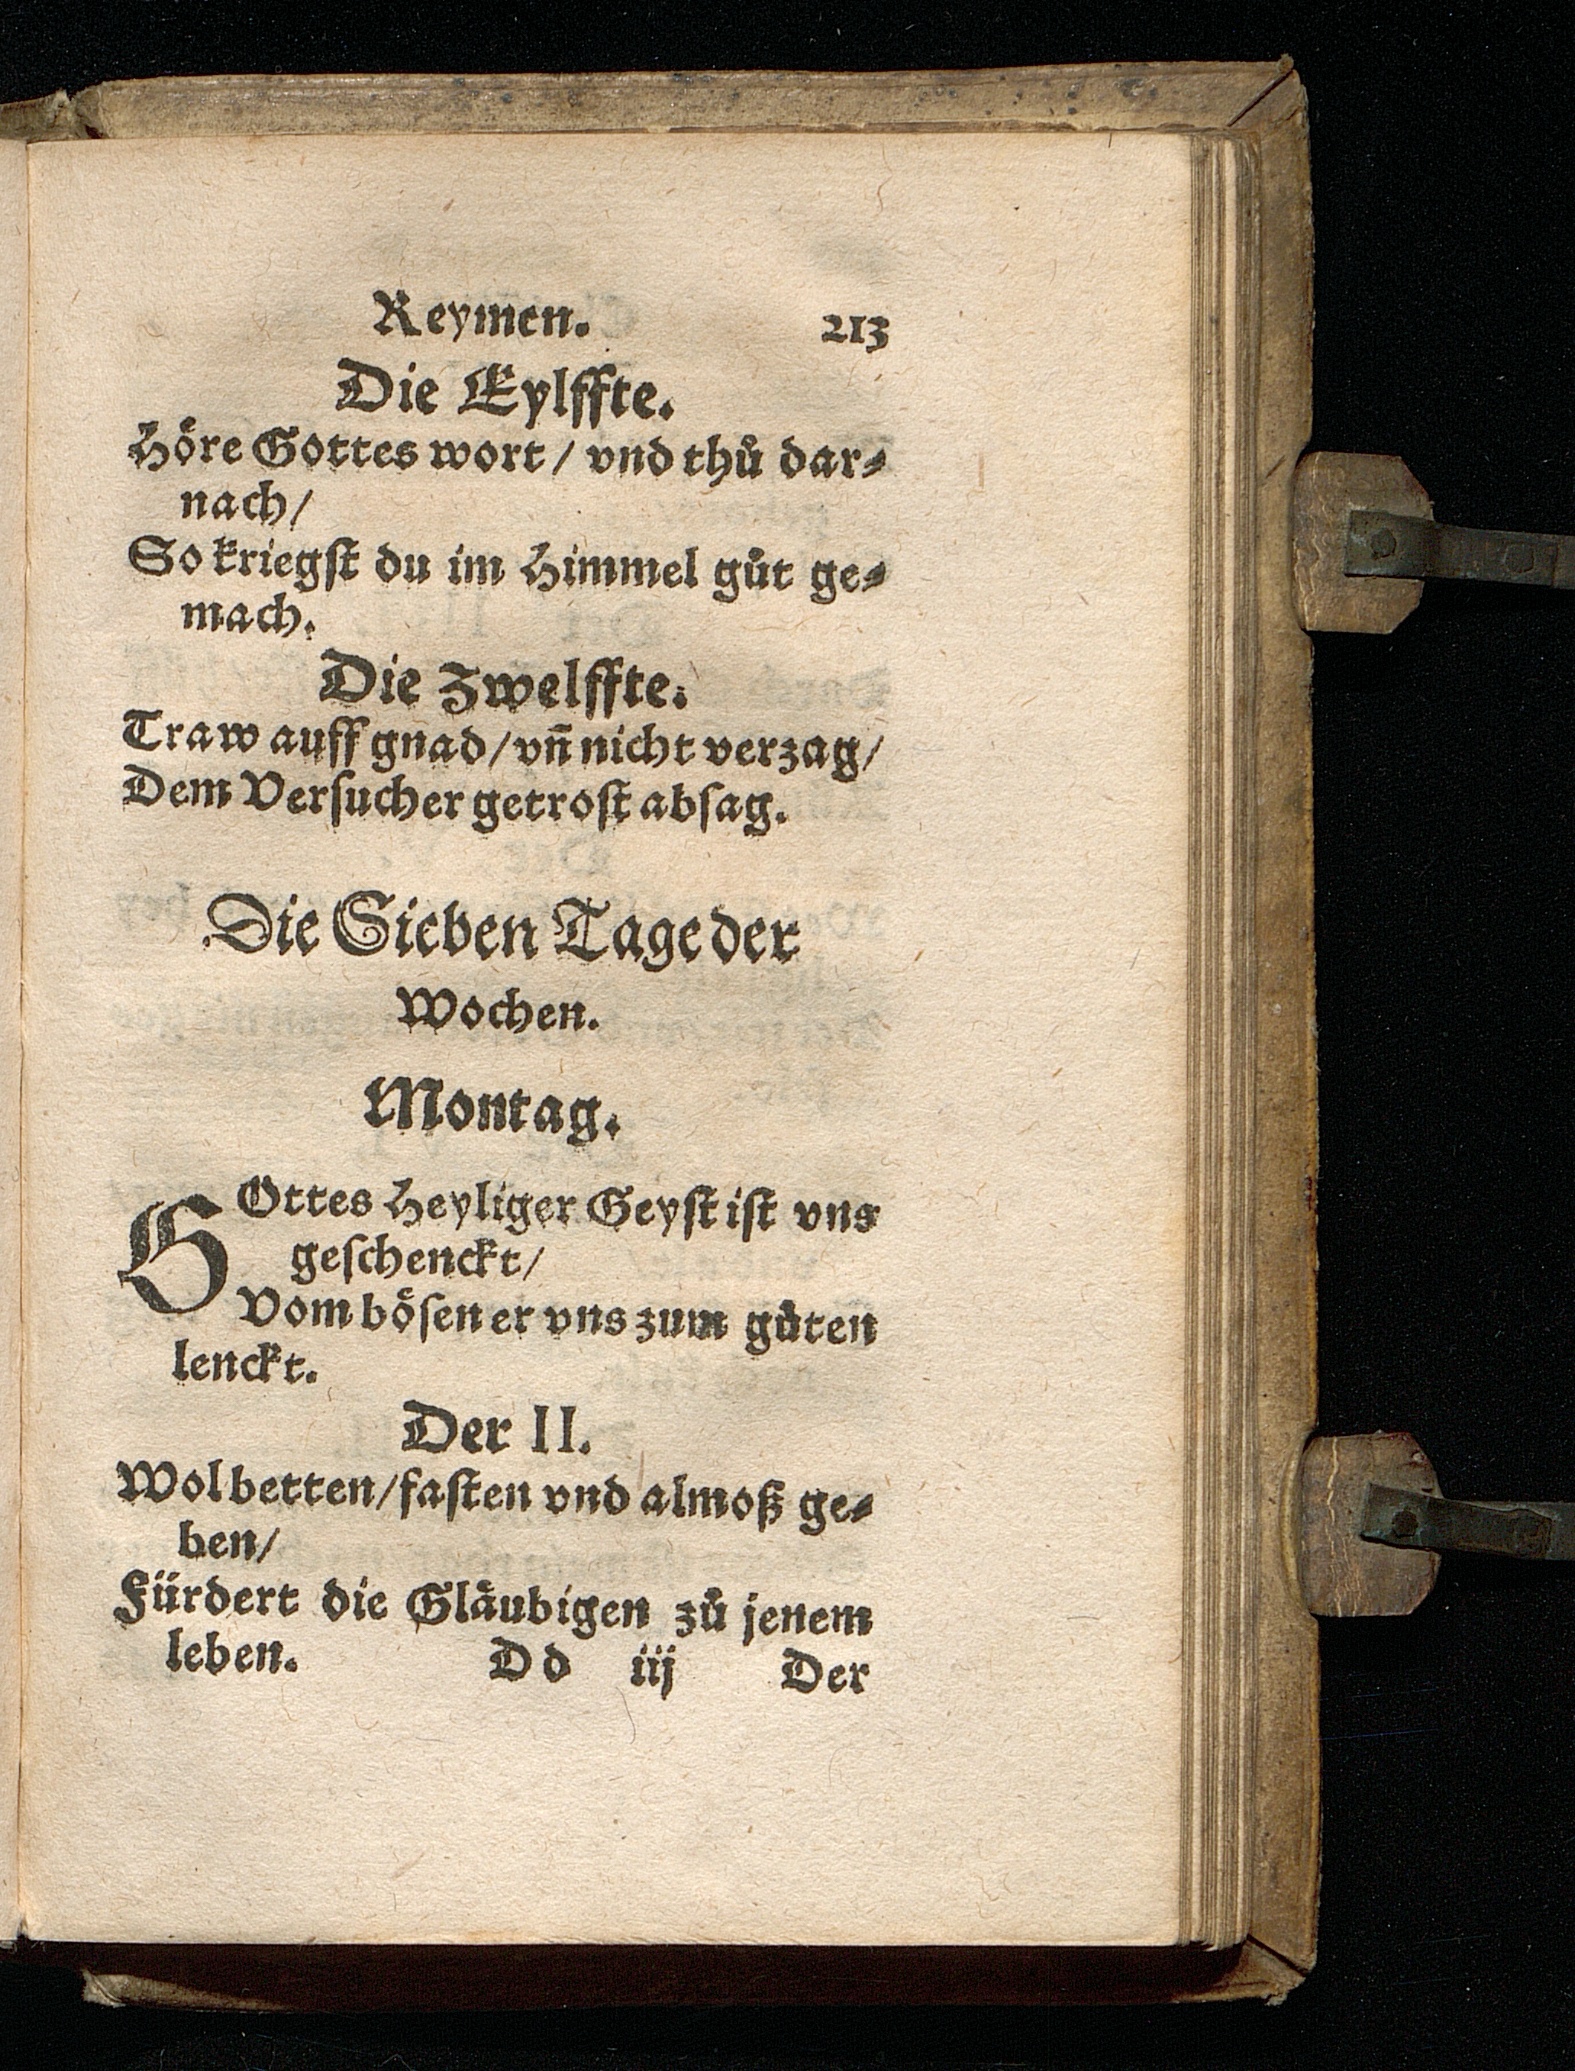 Reymen. 213
Die Eylffte.
Hoͤre Gottes wort / vnd thuͦ dar⸗
nach /
So kriegſt du im Himmel guͦt ge⸗
mach.
Die Zwelffte.
Traw auff gnad / vn̄ nicht verzag /
Dem Verſucher getroſt abſag.
Die Sieben Tage der
Wochen.
Montag.
GOttes Heyliger Geyſt iſt vns
geſchenckt /
Vom boͤſen er vns zum guͦten
lenckt.
Der II.
Wol betten / faſten vnd almoß ge⸗
ben /
Fürdert die Glaͤubigen zuͦ jenem
leben. Dd iij Der